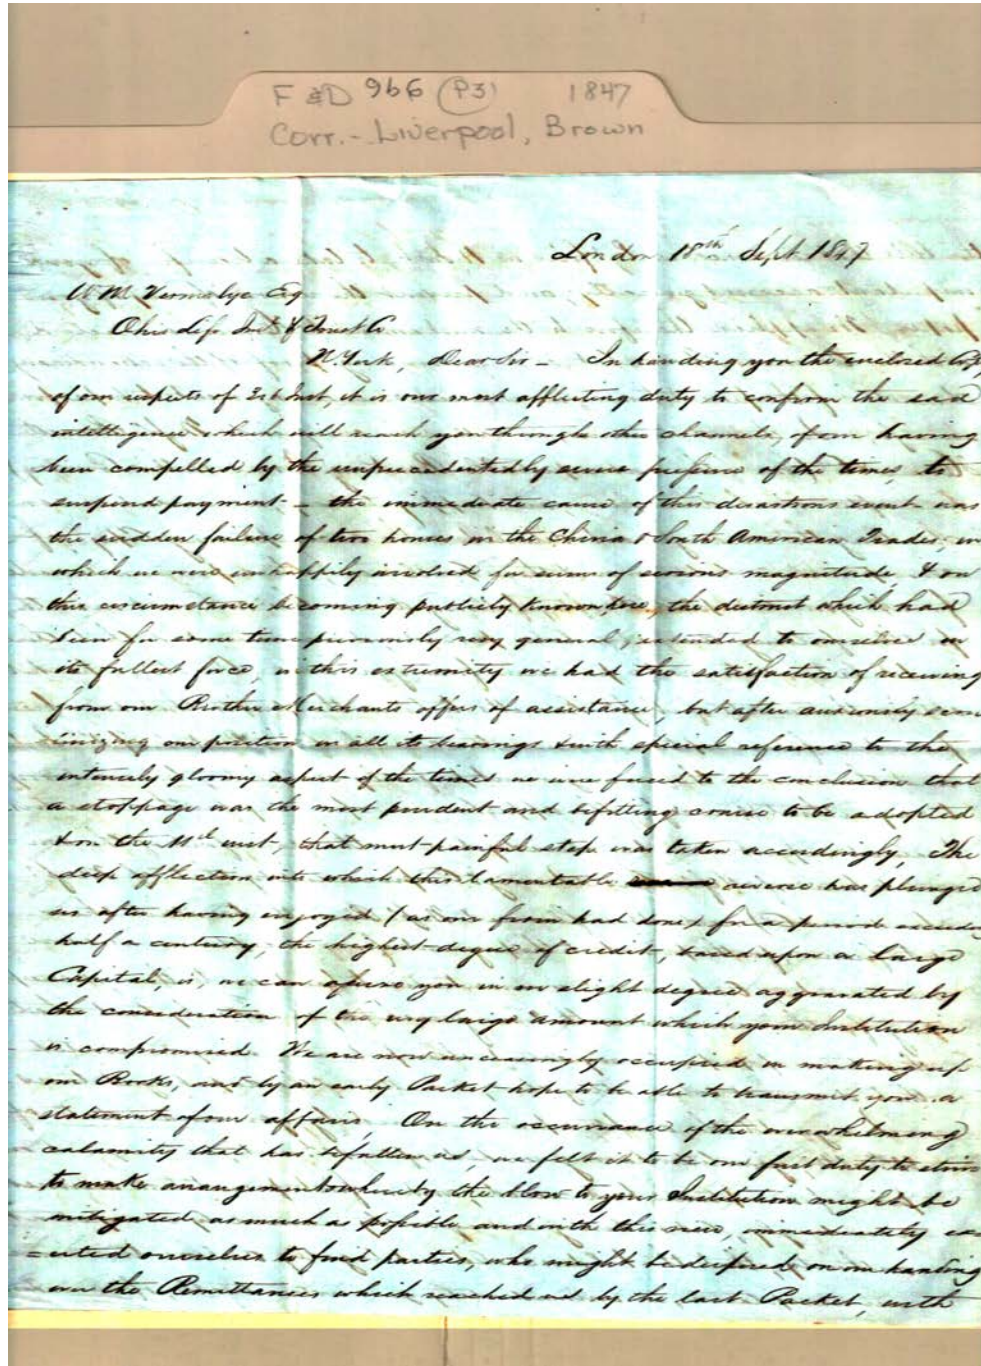 F & D 966 (P3) 1847
Corr. - Liverpool, Brown
London 18th Sept 1847
W M Vermilye Esq
Ohio Life Ins. & Trust Co
N. York, Dear Sir - In handing you the enclosed Copy
of our respects of 3rd Inst, it is our most afflicting duty to confirm the sad
intelligence which will reach you through other channels, of our having
been compelled by the unprecedentedly severe pressure of the times, to
suspend payment - the immediate cause of this disastrous event was
the sudden failure of two houses in the China & South American Trades, in
which we were unhappily involved for sums of serious magnitude, & on
this circumstance becoming publicly known here, the distrust which had
been for some time previously very general, extended to ourselves in
its fullest force, in this extremity we had the satisfaction of receiving
from our Brother Merchants offers of assistance, but after anxiously scru
tinizing our position in all its bearings & with special reference to the
intensely gloomy aspect of the times we were forced to the conclusion that
a stoppage was the most prudent and befitting course to be adopted
& on the inst, that most painful step was taken accordingly, The
deep affliction into which this lamentable reverse has plunged
us after having enjoyed (as our firm had done) for a period exceeding
half a century, the highest degree of credit, based upon a large
Capital, is, we can assure you in no slight degree aggravated by
the consideration of the very large amount which your Institution
is compromised. We are now unceasingly occupied in making up
our Books, and by an early Packet hope to be able to transmit you a
statement of our affairs, On the occurrence of the overwhelming
calamity that has befallen us, we felt it to be our first duty to strive
to make arrangements whereby the blow to your Institution might be
mitigated as much as possible and with this view, immediately ex
=erted ourselves to find parties, who might be disposed on our handing
over the Remittances which reached us by the last Packet, with